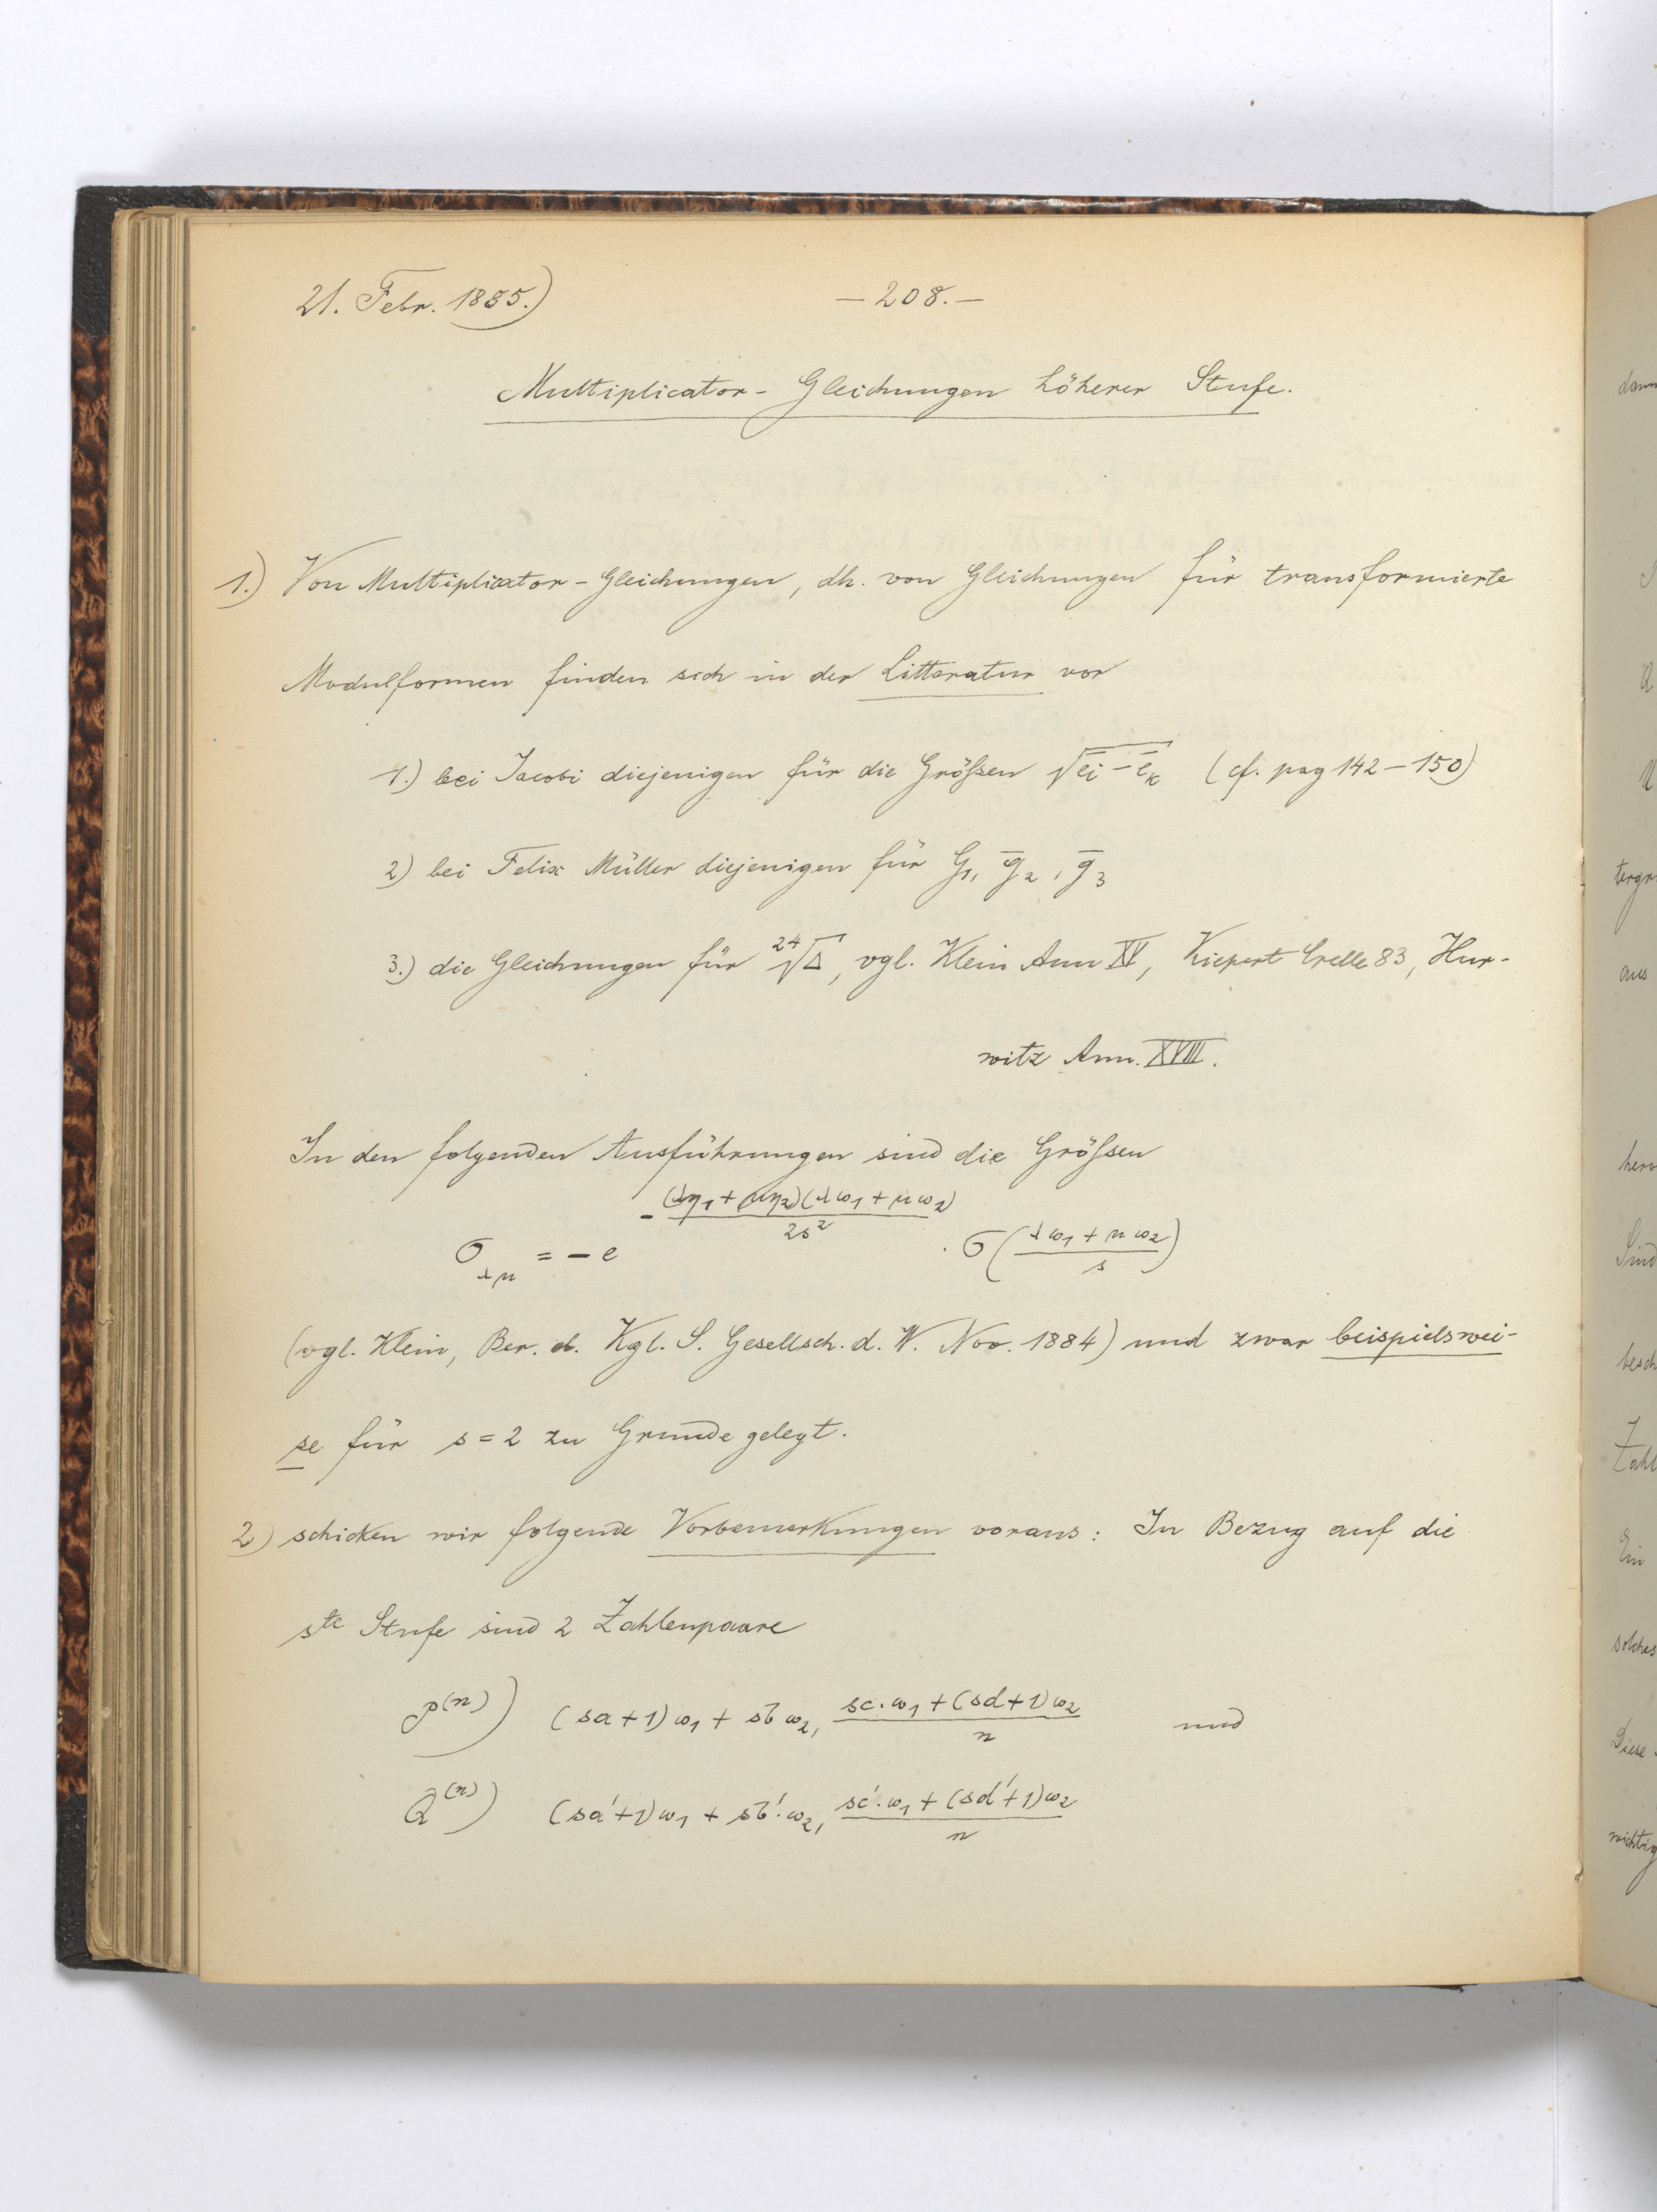 21. Febr. 1885.)
— 208. —
Multiplicator-Gleichungen höherer Stufe.
1.) Von Multiplicator-Gleichungen, dh. von Gleichungen für transformierte
Modulformen finden sich in der Litteratur vor
1.) bei Jacobi diejenigen für die Größen √(e̅i − e̅k) (cf. pag 142 – 150)
2) bei Felix Müller diejenigen für G₁, g̅₂, g̅₃
3.) die Gleichungen für ²⁴√Δ, vgl. Klein Ann XV, Kiepert Crelle 83, Hur-
witz Ann. XVIII.
In den folgenden Ausführungen sind die Größen
σ_λμ = − e^(−(λη₁ + μη₂)(λω₁ + μω₂)/2s²) · σ((λω₁ + μω₂)/s)
(vgl. Klein, Ber. d. Kgl. S. Gesellsch. d. W. Nov. 1884) und zwar beispielswei-
se für s = 2 zu Grunde gelegt.
2) schicken wir folgende Vorbemerkungen voraus: In Bezug auf die
s^te Stufe sind 2 Zahlenpaare
P^(n)) (sa + 1)ω₁ + sb ω₂, (sc·ω₁ + (sd + 1)ω₂)/n und
Q^(n)) (sa' + 1)ω₁ + sb'·ω₂, (sc'·ω₁ + (sd' + 1)ω₂)/n
dann
tergr
aus
herv
Sind
besch
Zahl
Ein
solches
Diese
wichtig